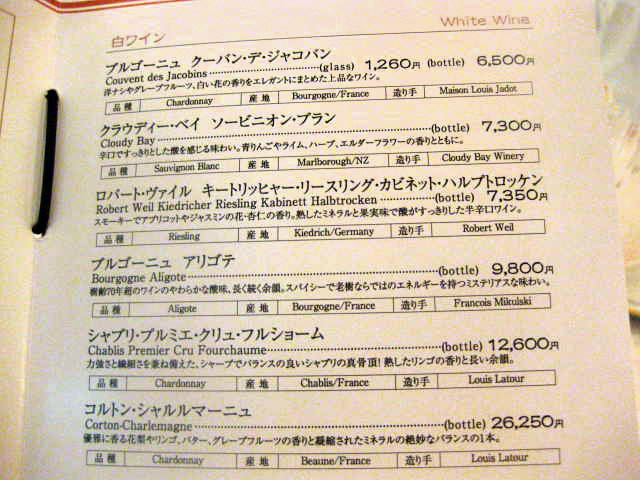 白ワイン White Wine
ブルゴーニュ クーバン・デ・ジャコバン
Couvent des Jacobins (glass) 1,260円 (bottle) 6,500円
洋ナシやグレープフルーツ、白い花の香りをエレガントにまとめた上品なワイン。
品種 Chardonnay 産地 Bourgogne/France 造り手 Maison Louis Jadot
クラウディー・ベイ ソービニオン・ブラン
Cloudy Bay (bottle) 7,300円
辛口ですっきりとした酸を感じる味わい。青りんごやライム、ハーブ、エルダーフラワーの香りとともに。
品種 Sauvignon Blanc 産地 Marlborough/NZ 造り手 Cloudy Bay Winery
ロバート・ヴァイル キートリッヒャー・リースリング・カビネット・ハルプトロッケン
Robert Weil Kiedricher Riesling Kabinett Halbtrocken (bottle) 7,350円
スモーキーでアプリコットやジャスミンの花・杏仁の香り。熟したミネラルと果実味で酸がすっきりした半辛口ワイン。
品種 Riesling 産地 Kiedrich/Germany 造り手 Robert Weil
ブルゴーニュ アリゴテ
Bourgogne Aligote (bottle) 9,800円
樹齢70年超のワインのやわらかな酸味、長く続く余韻。スパイシーで老樹ならではのエネルギーを持つミステリアスな味わい。
品種 Aligote 産地 Bourgogne/France 造り手 Francois Mikulski
シャブリ・プルミエ・クリュ・フルショーム
Chablis Premier Cru Fourchaume (bottle) 12,600円
力強さと繊細さを兼ね備えた、シャープでバランスの良いシャブリの真骨頂！熟したリンゴの香りと長い余韻。
品種 Chardonnay 産地 Chablis/France 造り手 Louis Latour
コルトン・シャルルマーニュ
Corton-Charlemagne (bottle) 26,250円
優雅に香る花梨やリンゴ、バター、グレープフルーツの香りと凝縮されたミネラルの絶妙なバランスの1本。
品種 Chardonnay 産地 Beaune/France 造り手 Louis Latour